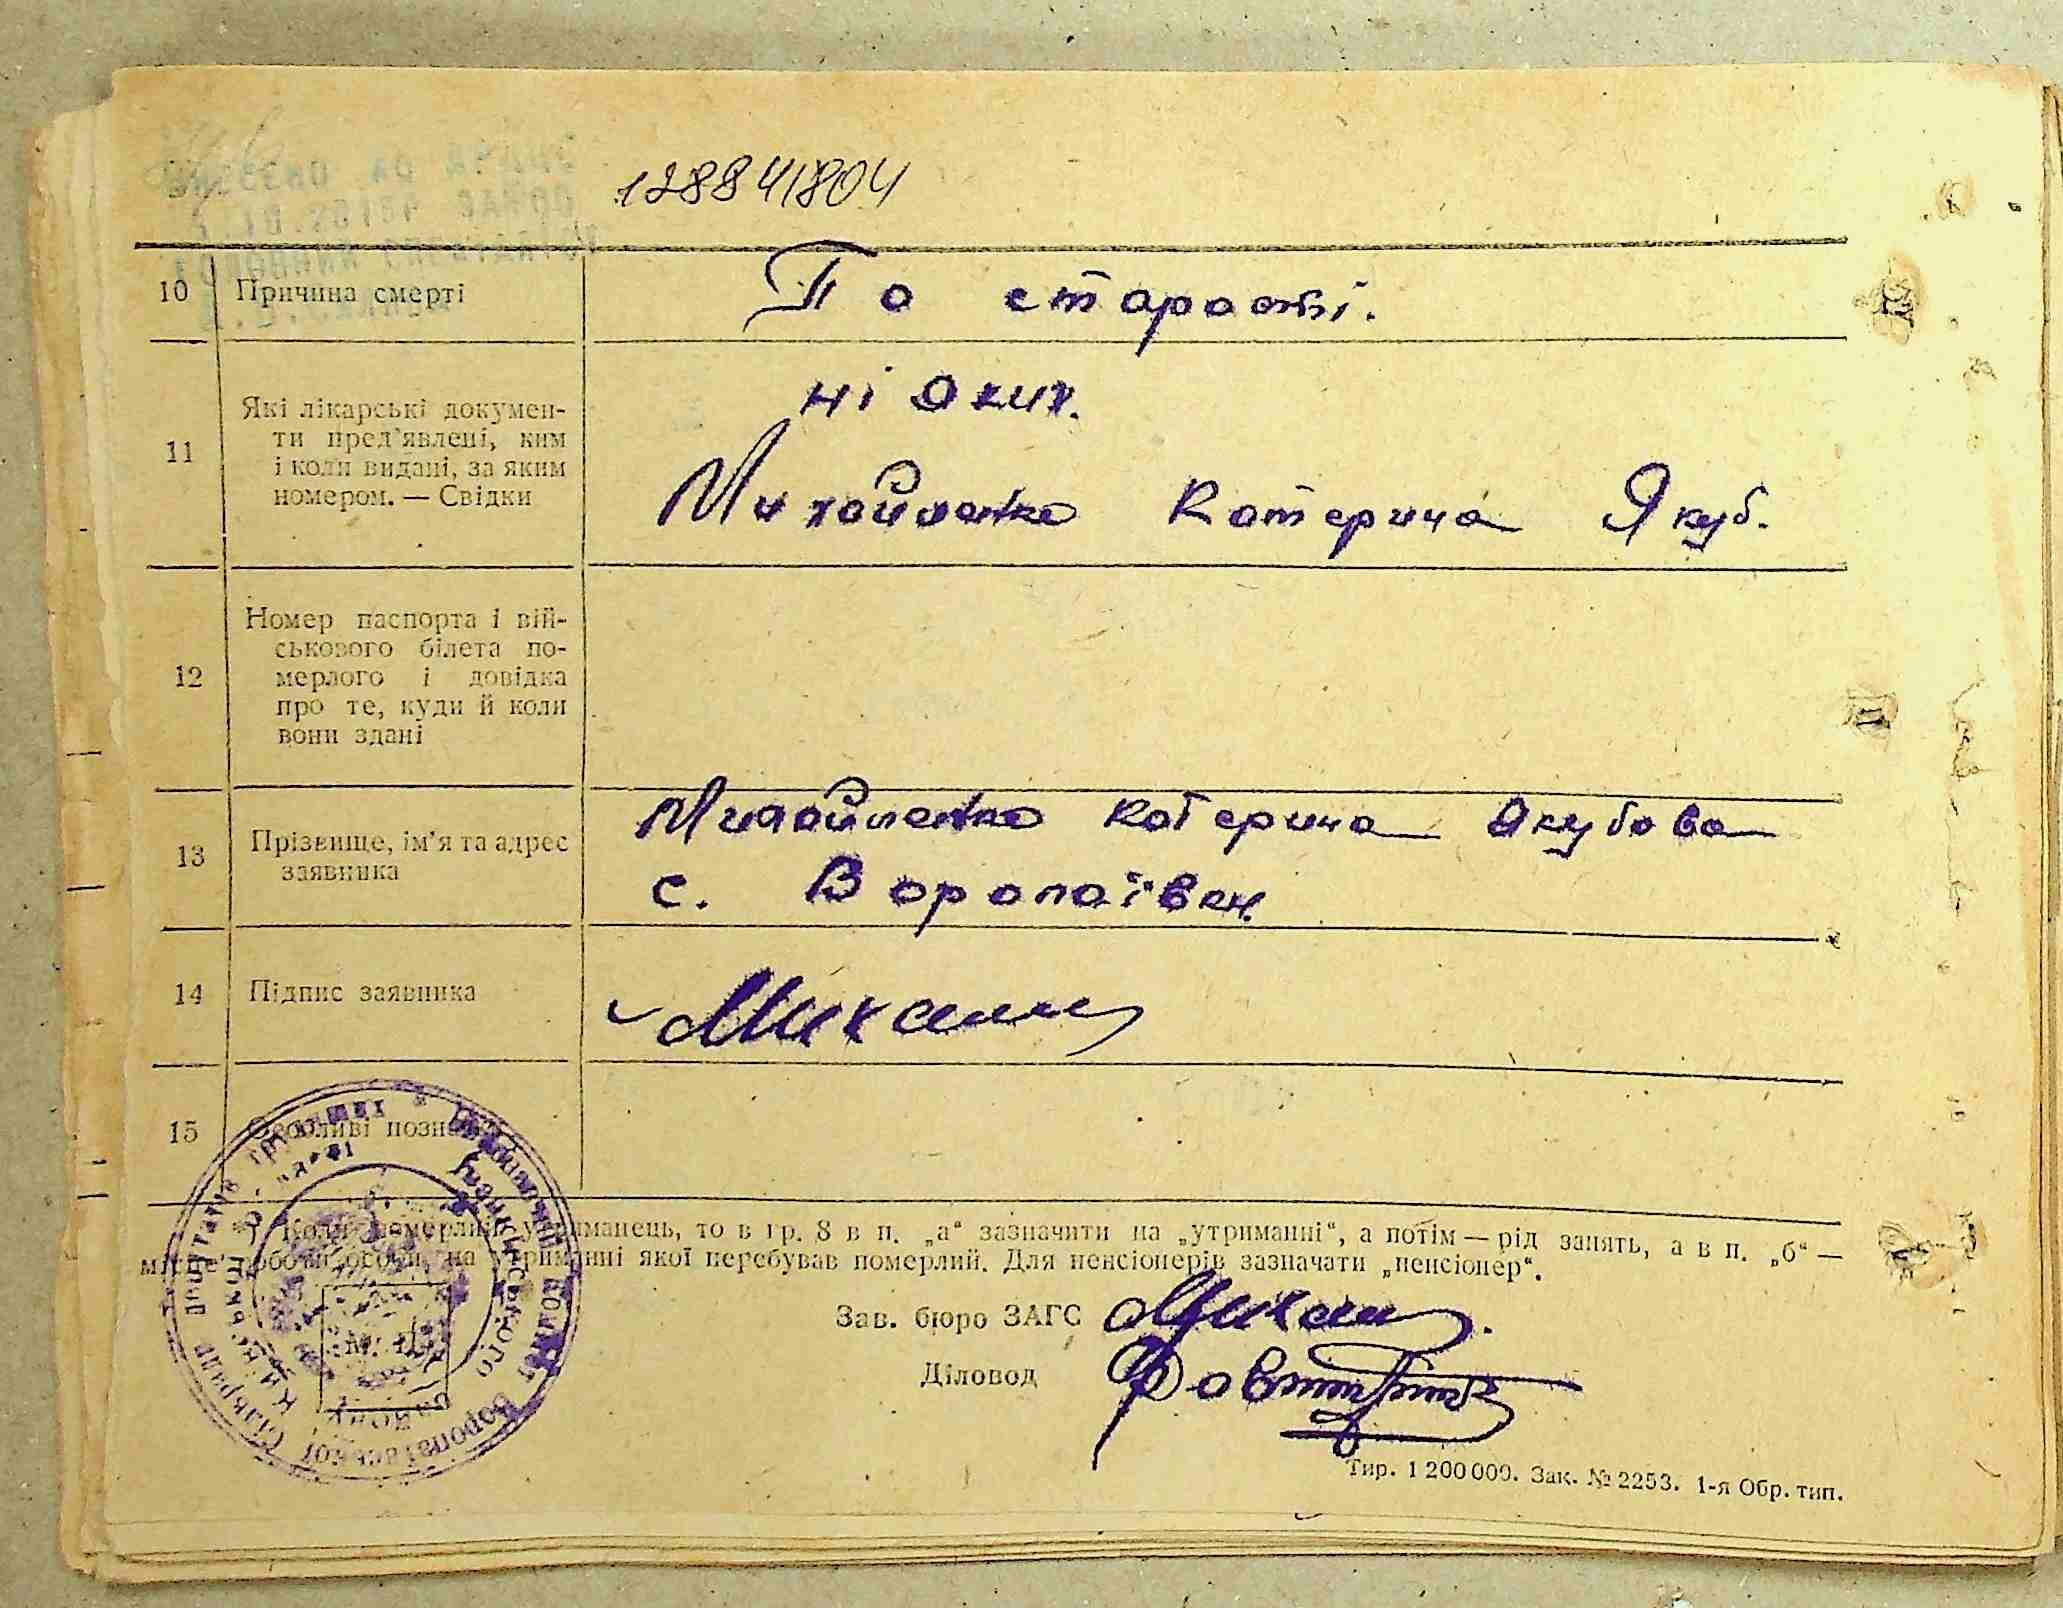 128841804
10 Причина смерті По старості.
ні яких.
11 Які лікарські докумен-
ти пред'явлені, ким
і коли видані, за яким
номером. — Свідки
Михайленко Катерина Якуб.
12 Номер паспорта і вій-
ськового білета по-
мерлого і довідка
про те, куди й коли
вони здані
13 Прізвище, ім'я та адрес
заявника
Михайленко Катерина Якубова
с. Воропаївка
14 Підпис заявника
15 Особливі позначки
1) Коли померлий утриманець, то в гр. 8 в п. „а“ зазначити на „утриманні“, а потім — рід занять, а в п. „б“ —
місце роботи особи, на утриманні якої перебував померлий. Для пенсіонерів зазначати „пенсіонер“.
Зав. бюро ЗАГС
Діловод
Тир. 1 200 000. Зак. № 2253. 1-я Обр. тип.